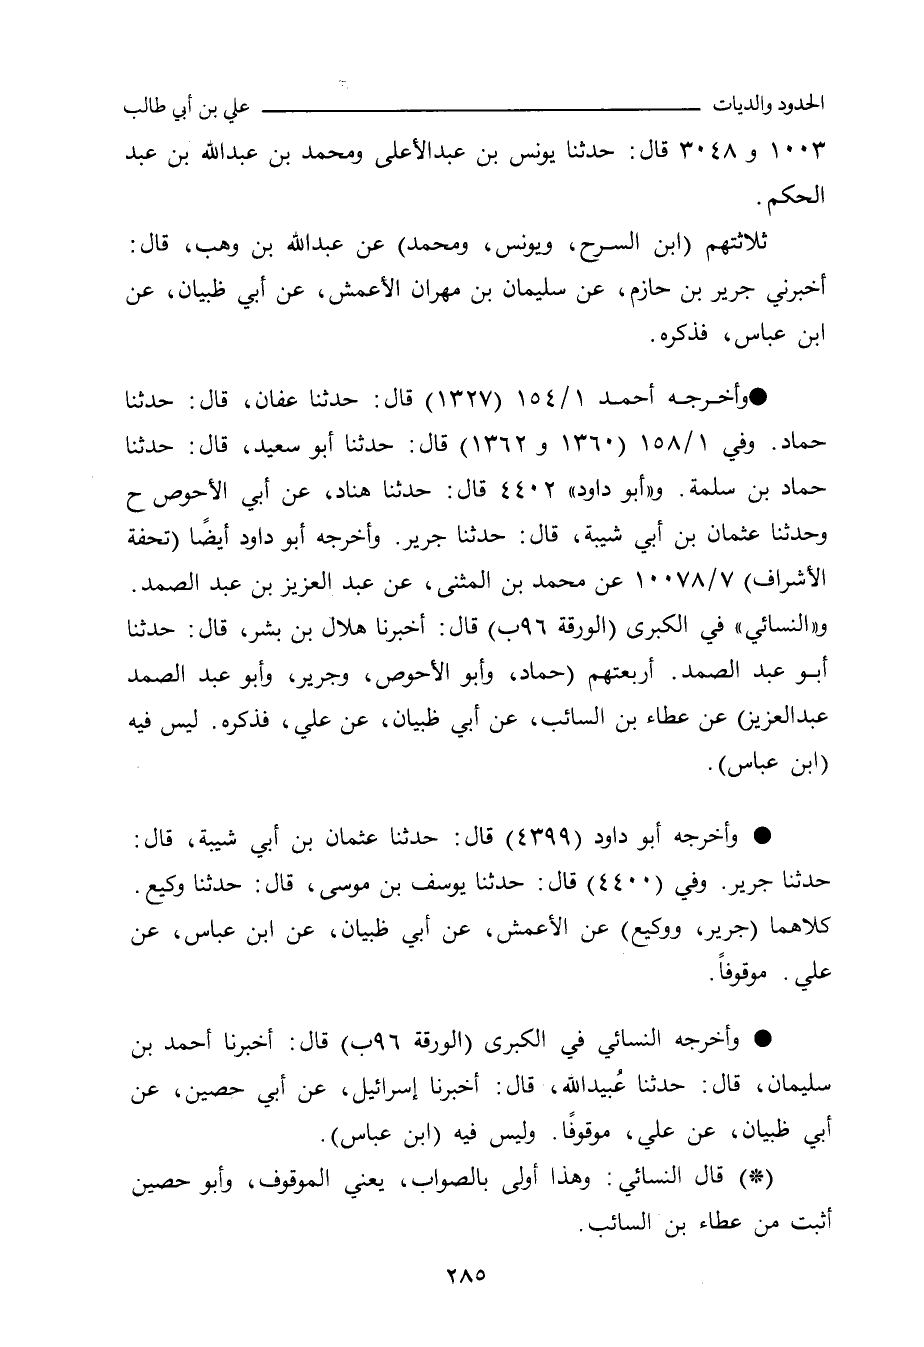 الحدود والديات ــــــــــــــــــــ علي بن أبي طالب
١٠٠٣ و ٣٠٤٨ قال: حدثنا يونس بن عبدالأعلى ومحمد بن عبدالله بن عبد
الحكم.
ثلاثتهم (ابن السرح، ويونس، ومحمد) عن عبدالله بن وهب، قال:
أخبرني جرير بن حازم، عن سليمان بن مهران الأعمش، عن أبي ظبيان، عن
ابن عباس، فذكره.
●وأخرجه أحمد ١/ ١٥٤ (١٣٢٧) قال: حدثنا عفان، قال: حدثنا
حماد. وفي ١/ ١٥٨ (١٣٦٠ و ١٣٦٢) قال: حدثنا أبو سعيد، قال: حدثنا
حماد بن سلمة. و«أبو داود» ٤٤٠٢ قال: حدثنا هناد، عن أبي الأحوص ح
وحدثنا عثمان بن أبي شيبة، قال: حدثنا جرير. وأخرجه أبو داود أيضًا (تحفة
الأشراف) ٧/ ١٠٠٧٨ عن محمد بن المثنى، عن عبد العزيز بن عبد الصمد.
و«النسائي» في الكبرى (الورقة ٩٦ب) قال: أخبرنا هلال بن بشر، قال: حدثنا
أبو عبد الصمد. أربعتهم (حماد، وأبو الأحوص، وجرير، وأبو عبد الصمد
عبدالعزيز) عن عطاء بن السائب، عن أبي ظبيان، عن علي، فذكره. ليس فيه
(ابن عباس).
● وأخرجه أبو داود (٤٣٩٩) قال: حدثنا عثمان بن أبي شيبة، قال:
حدثنا جرير. وفي (٤٤٠٠) قال: حدثنا يوسف بن موسى، قال: حدثنا وكيع.
كلاهما (جرير، ووكيع) عن الأعمش، عن أبي ظبيان، عن ابن عباس، عن
علي. موقوفاً.
● وأخرجه النسائي في الكبرى (الورقة ٩٦ب) قال: أخبرنا أحمد بن
سليمان، قال: حدثنا عُبيدالله، قال: أخبرنا إسرائيل، عن أبي حصين، عن
أبي ظبيان، عن علي، موقوفًا. وليس فيه (ابن عباس).
(*) قال النسائي: وهذا أولى بالصواب، يعني الموقوف، وأبو حصين
أثبت من عطاء بن السائب.
٢٨٥